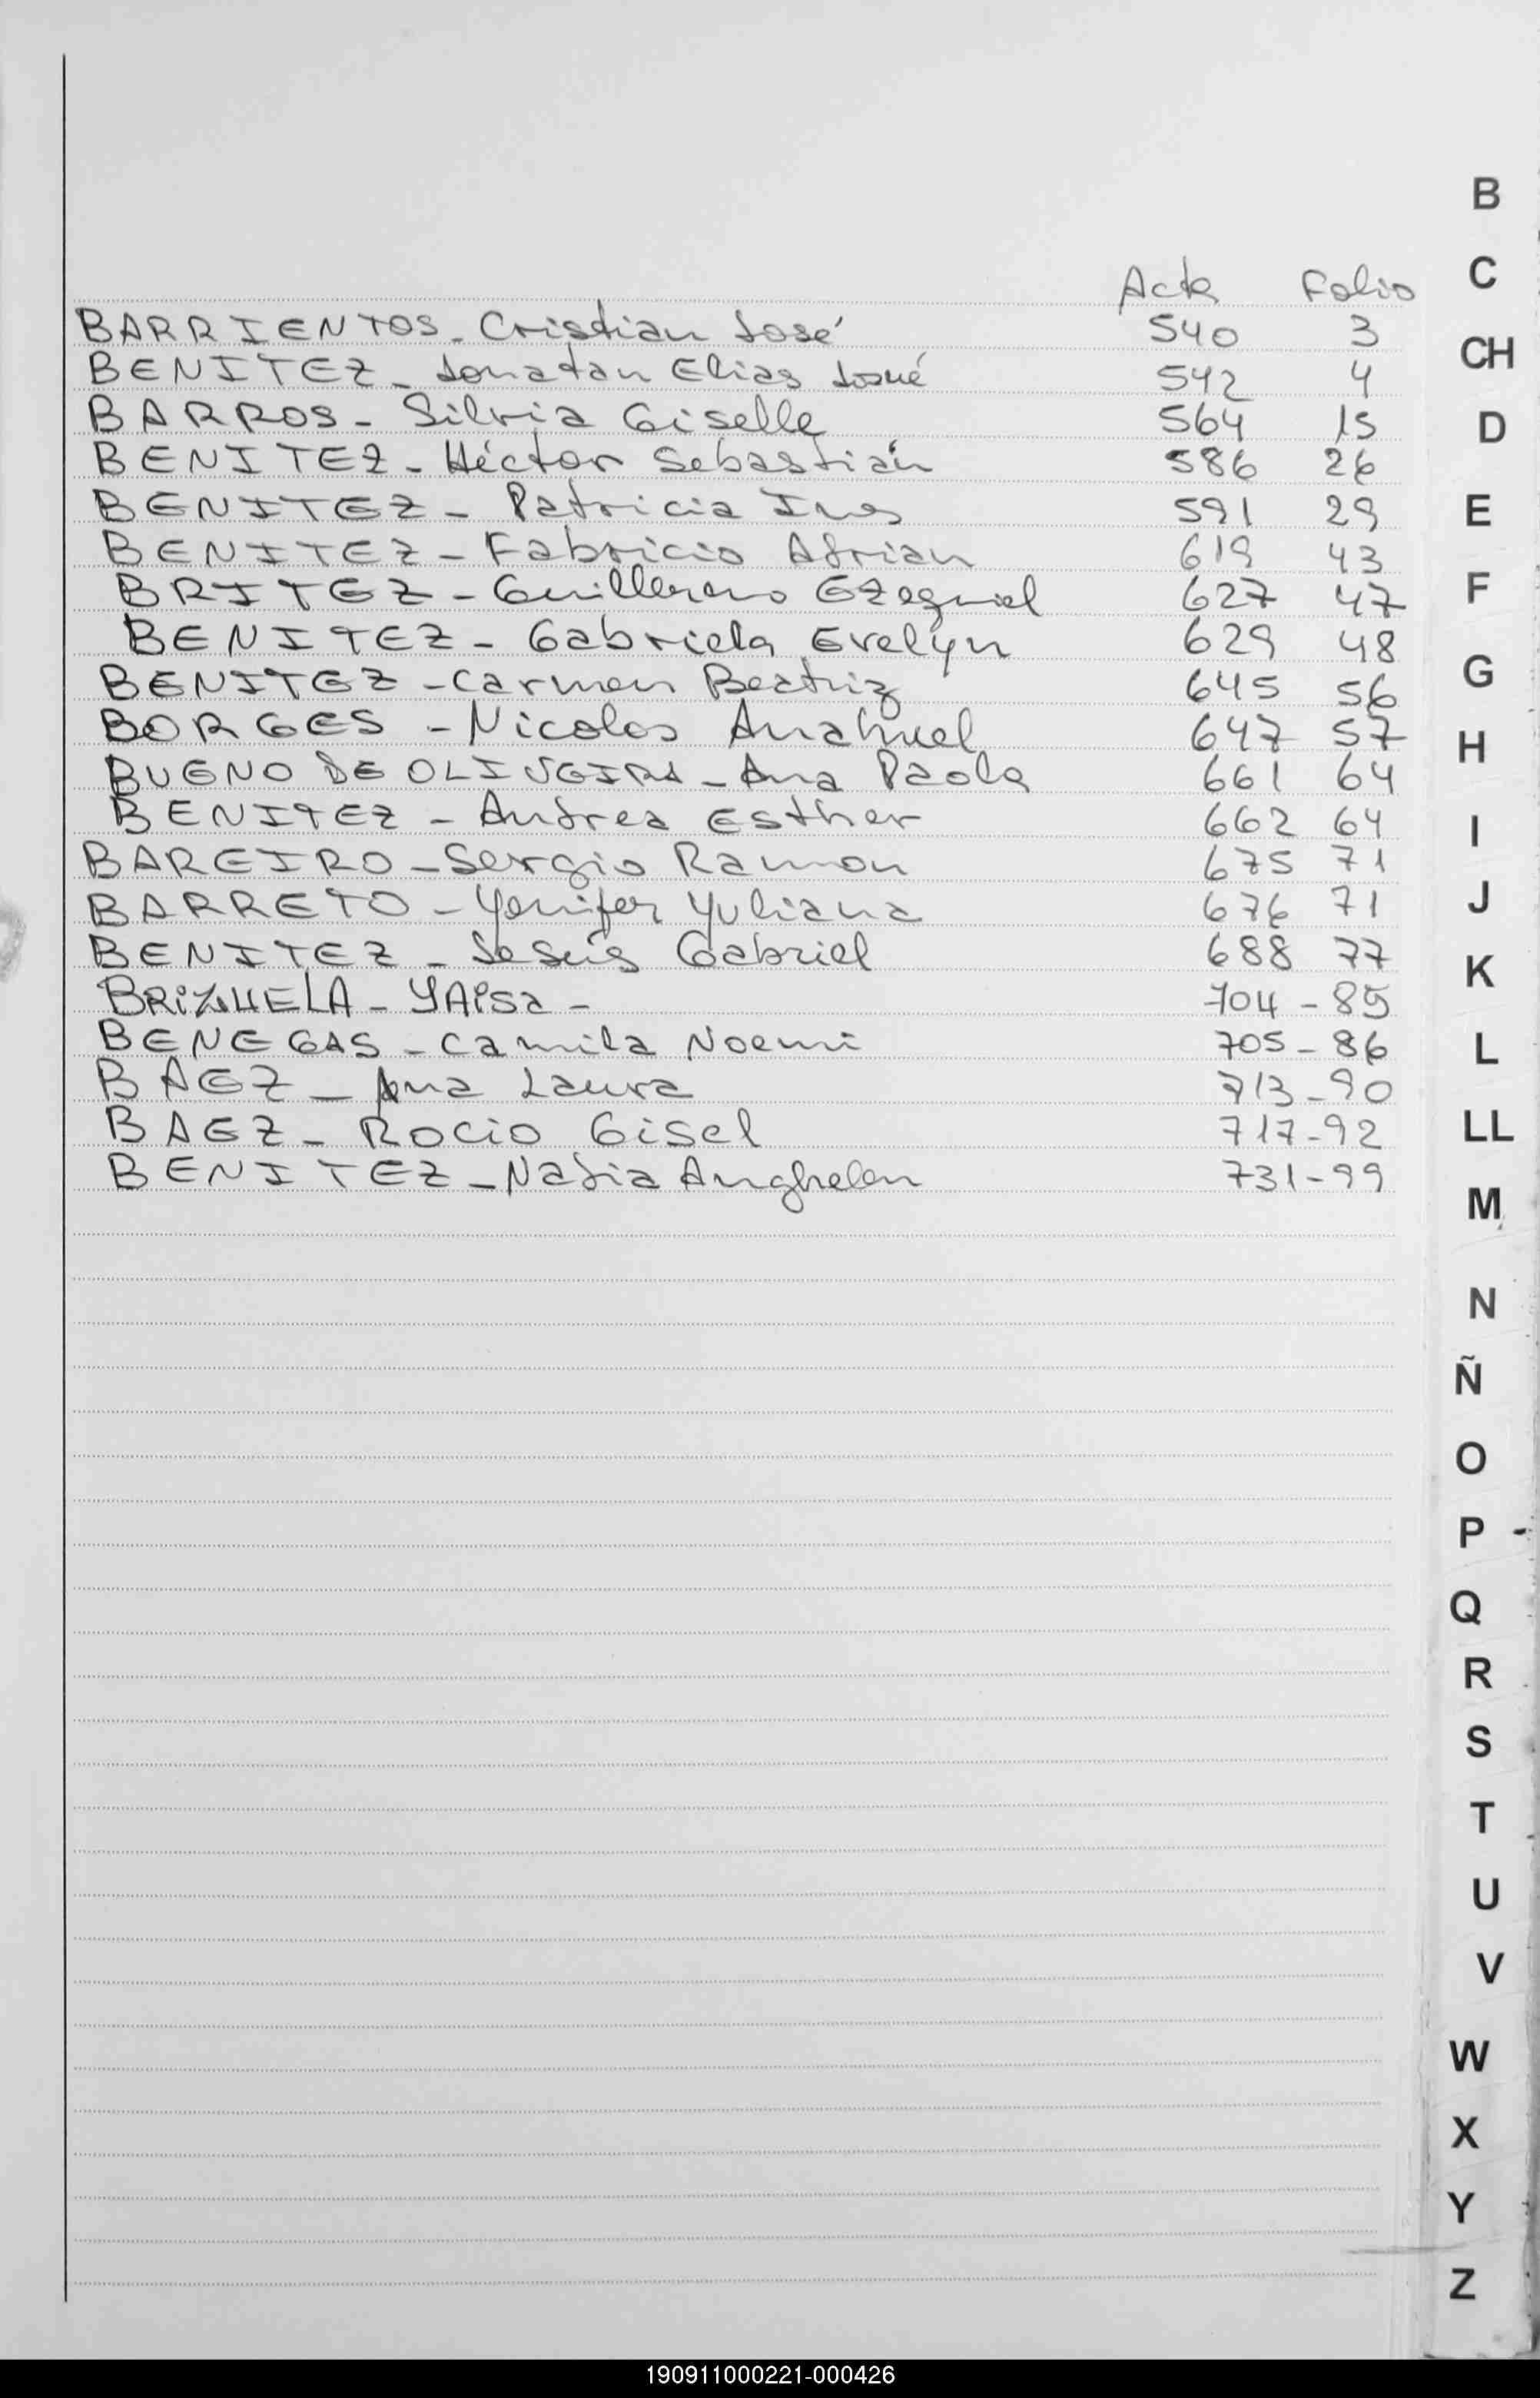 Acta Folio
BARRIENTOS - Cristian José 540 3
BENITEZ - Jonatan Elias Josué 542 4
BARROS - Silvia Giselle 564 15
BENITEZ - Héctor Sebastián 586 26
BENITEZ - Patricia Ines 591 29
BENITEZ - Fabricio Adrian 619 43
BRITEZ - Guillermo Ezequiel 627 47
BENITEZ - Gabriela Evelyn 629 48
BENITEZ - Carmen Beatriz 645 56
BORGES - Nicolas Anahuel 647 57
BUENO DE OLIVEIRA - Ana Paola 661 64
BENITEZ - Andrea Esther 662 64
BAREIRO - Sergio Ramon 675 71
BARRETO - Yenifer Yuliana 676 71
BENITEZ - Jesús Gabriel 688 77
BRIZUELA - YAisa - 704 - 85
BENEGAS - Camila Noemi 705 - 86
BAEZ - Ana Laura 713 - 90
BAEZ - Rocio Gisel 717 - 92
BENITEZ - Nadia Anghelen 731 - 99
B
C
CH
D
E
F
G
H
I
J
K
L
LL
M
N
Ñ
O
P
Q
R
S
T
U
V
W
X
Y
Z
190911000221-000426